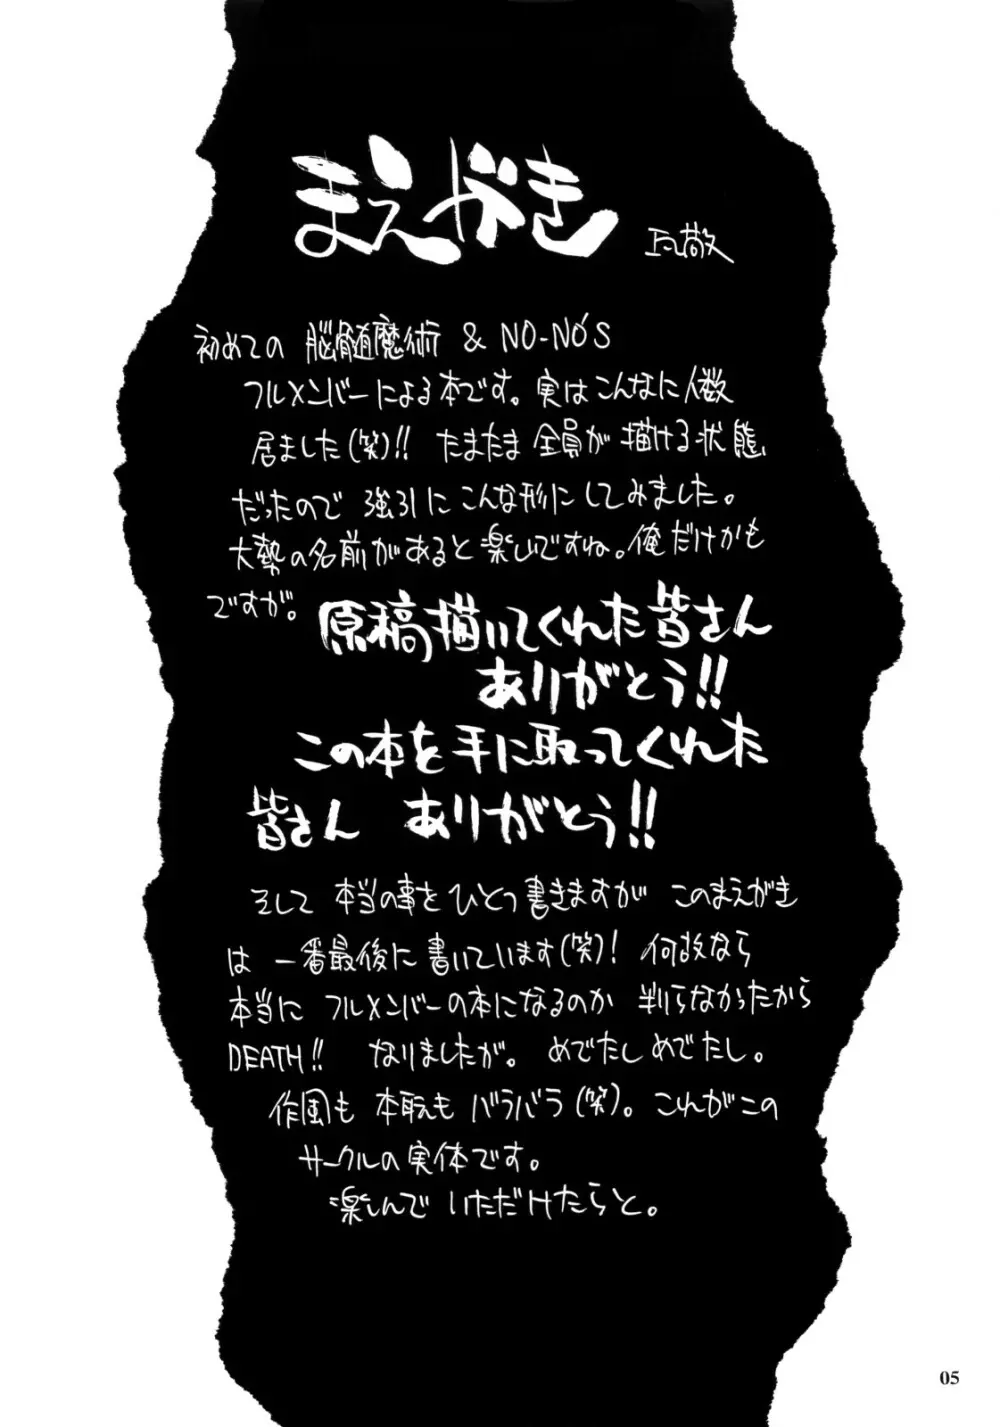 まえがき
敬
初めての 脳髄魔術 & NO-NO'S
フルメンバーによる本です。実はこんなに人数
居ました(笑)!! たまたま全員が描ける状態
だったので 強引にこんな形にしてみました。
大勢の名前があると楽しいですね。俺だけかも
ですが。
原稿描いてくれた皆さん
ありがとう!!
この本を手に取ってくれた
皆さん ありがとう!!
そして 本当の事をひとつ書きますが このまえがき
は 一番最後に書いています(笑)! 何故なら
本当に フルメンバーの本になるのか 判らなかったから
DEATH!! なりましたが。 めでたしめでたし。
作風も 本職も バラバラ(笑)。 これがこの
サークルの実体です。
楽しんで いただけたらと。
05